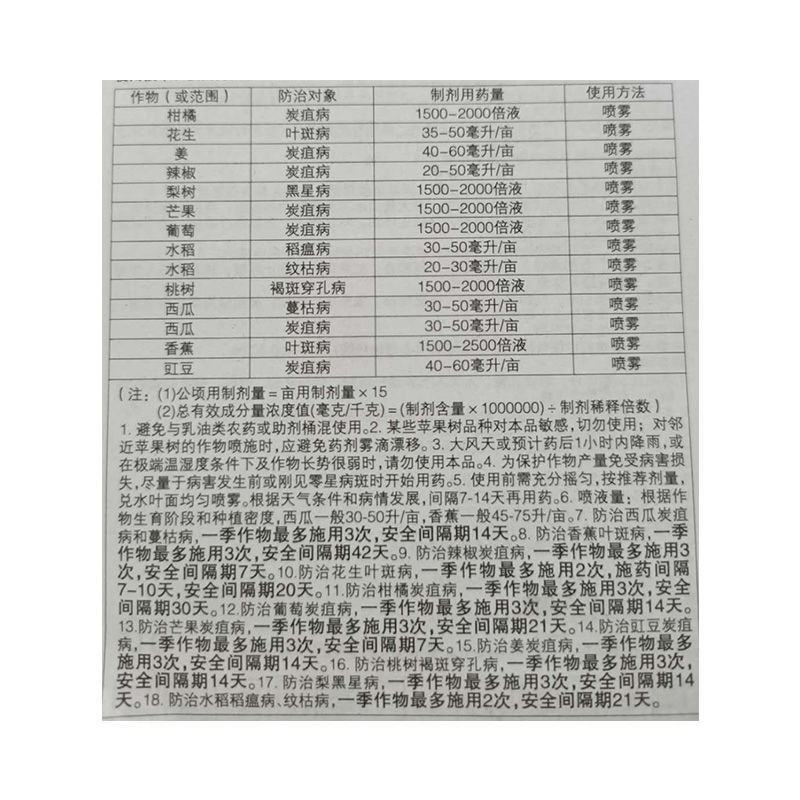 作物（或范围） 防治对象 制剂用药量 使用方法
柑橘 炭疽病 1500-2000倍液 喷雾
花生 叶斑病 35-50毫升/亩 喷雾
姜 炭疽病 40-60毫升/亩 喷雾
辣椒 炭疽病 20-50毫升/亩 喷雾
梨树 黑星病 1500-2000倍液 喷雾
芒果 炭疽病 1500-2000倍液 喷雾
葡萄 炭疽病 1500-2000倍液 喷雾
水稻 稻瘟病 30-50毫升/亩 喷雾
水稻 纹枯病 20-30毫升/亩 喷雾
桃树 褐斑穿孔病 1500-2000倍液 喷雾
西瓜 蔓枯病 30-50毫升/亩 喷雾
西瓜 炭疽病 30-50毫升/亩 喷雾
香蕉 叶斑病 1500-2500倍液 喷雾
豇豆 炭疽病 40-60毫升/亩 喷雾
（注：(1)公顷用制剂量＝亩用制剂量×15
(2)总有效成分量浓度值(毫克/千克)＝(制剂含量×1000000)÷制剂稀释倍数）
1. 避免与乳油类农药或助剂桶混使用。2. 某些苹果树品种对本品敏感,切勿使用；对邻
近苹果树的作物喷施时,应避免药剂雾滴漂移。3. 大风天或预计药后1小时内降雨,或
在极端温湿度条件下及作物长势很弱时,请勿使用本品。4. 为保护作物产量免受病害损
失,尽量于病害发生前或刚见零星病斑时开始用药。5. 使用前需充分摇匀,按推荐剂量,
兑水叶面均匀喷雾。根据天气条件和病情发展,间隔7-14天再用药。6. 喷液量；根据作
物生育阶段和种植密度,西瓜一般30-50升/亩,香蕉一般45-75升/亩。7. 防治西瓜炭疽
病和蔓枯病,一季作物最多施用3次,安全间隔期14天。8. 防治香蕉叶斑病,一季
作物最多施用3次,安全间隔期42天。9. 防治辣椒炭疽病,一季作物最多施用3
次,安全间隔期7天。10.防治花生叶斑病,一季作物最多施用2次,施药间隔
7-10天,安全间隔期20天。11.防治柑橘炭疽病,一季作物最多施用3次,安全间
隔期30天。12.防治葡萄炭疽病,一季作物最多施用3次,安全间隔期14天。
13.防治芒果炭疽病,一季作物最多施用3次,安全间隔期21天。14.防治豇豆炭疽
病,一季作物最多施用3次,安全间隔期7天。15.防治姜炭疽病,一季作物最多
施用3次,安全间隔期14天。16. 防治桃树褐斑穿孔病,一季作物最多施用3次,
安全间隔期14天。17. 防治梨黑星病,一季作物最多施用3次,安全间隔期14
天。18. 防治水稻稻瘟病、纹枯病,一季作物最多施用2次,安全间隔期21天。